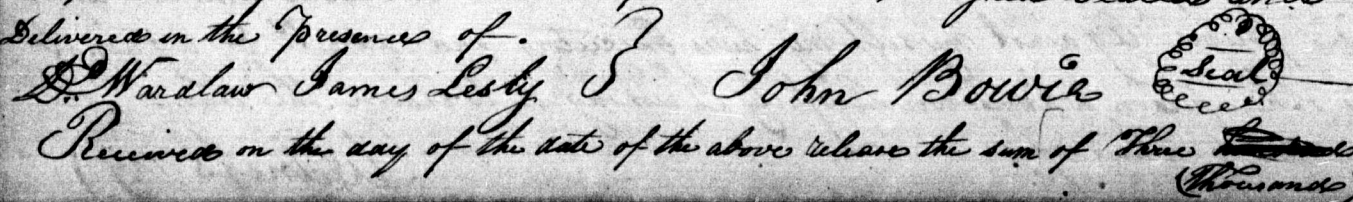 Delivered in the Presence of.
D. Wardlaw James Lesly } John Bowie Seal
Received on the day of the date of the above release the sum of Three
(Thousand